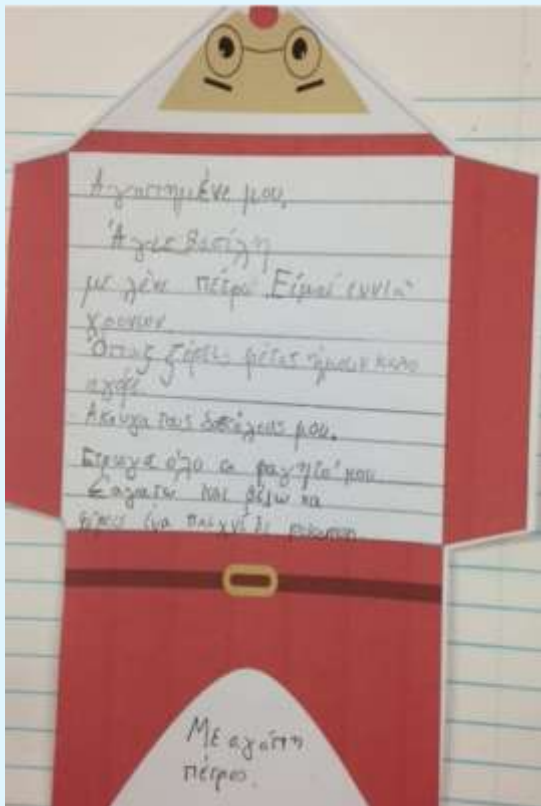 Αγαπημένε μου,
Άγιε Βασίλη
με λένε πέτρο Είμαι εννιά
χρονων
Όπως ξέρεις φέτος ήμουν καλο
αγόρι
Ακουγα τους δασκάλους μου.
Ετρωγα όλο το φαγητό μου
Σαγαπω και θέλω να
φέρεις ένα παιχνίδι
Με αγάπη
πέτρος.